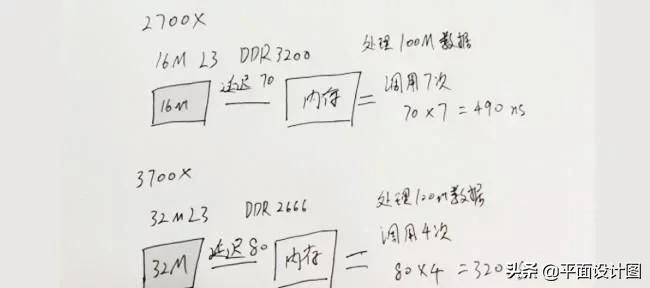 2700X
16M L3 DDR3200 处理100M数据
16M 延迟 70 内存 = 调用7次
70×7=490 ns
3700X
32M L3 DDR2666 处理120M数据
32M 延迟80 内存 = 调用4次
80×4=320
头条@平面设计图